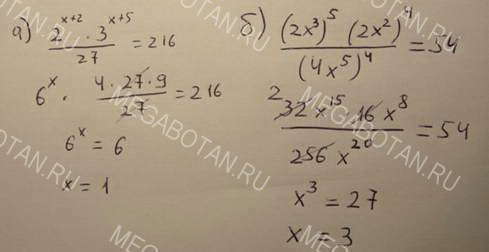 а) 2^(x+2) · 3^(x+5) / 27 = 216
6^x · 4 · 27 · 9 / 27 = 216
6^x = 6
x = 1
б) (2x^3)^5 (2x^2)^4 / (4x^5)^4 = 54
2
32x^15 16x^8 / 256x^20 = 54
x^3 = 27
x = 3
MEGABOTAN.RU
MEGABOTAN.RU
MEGABOTAN.RU